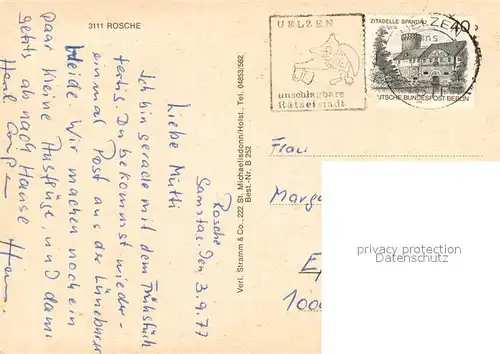 3111 ROSCHE
Rosche
Samstag, den 3.9.77
Liebe Mutti
Ich bin gerade mit dem Frühstück
fertig. Du bekommst wieder-
einmal Post aus der Lüneburger
Heide. Wir machen noch ein
paar kleine Ausflüge, und dann
geht's ab nach Hause
Herzl. Grüße
Verl. Stramm & Co., 222 St. Michaelisdonn/Holst., Tel. 04853/562
Best.-Nr. B 252
UELZEN
unschlagbare
Rätselstadt
ZITADELLE SPANDAU
DEUTSCHE BUNDESPOST BERLIN
UELZEN
Frau
privacy protection
watermark